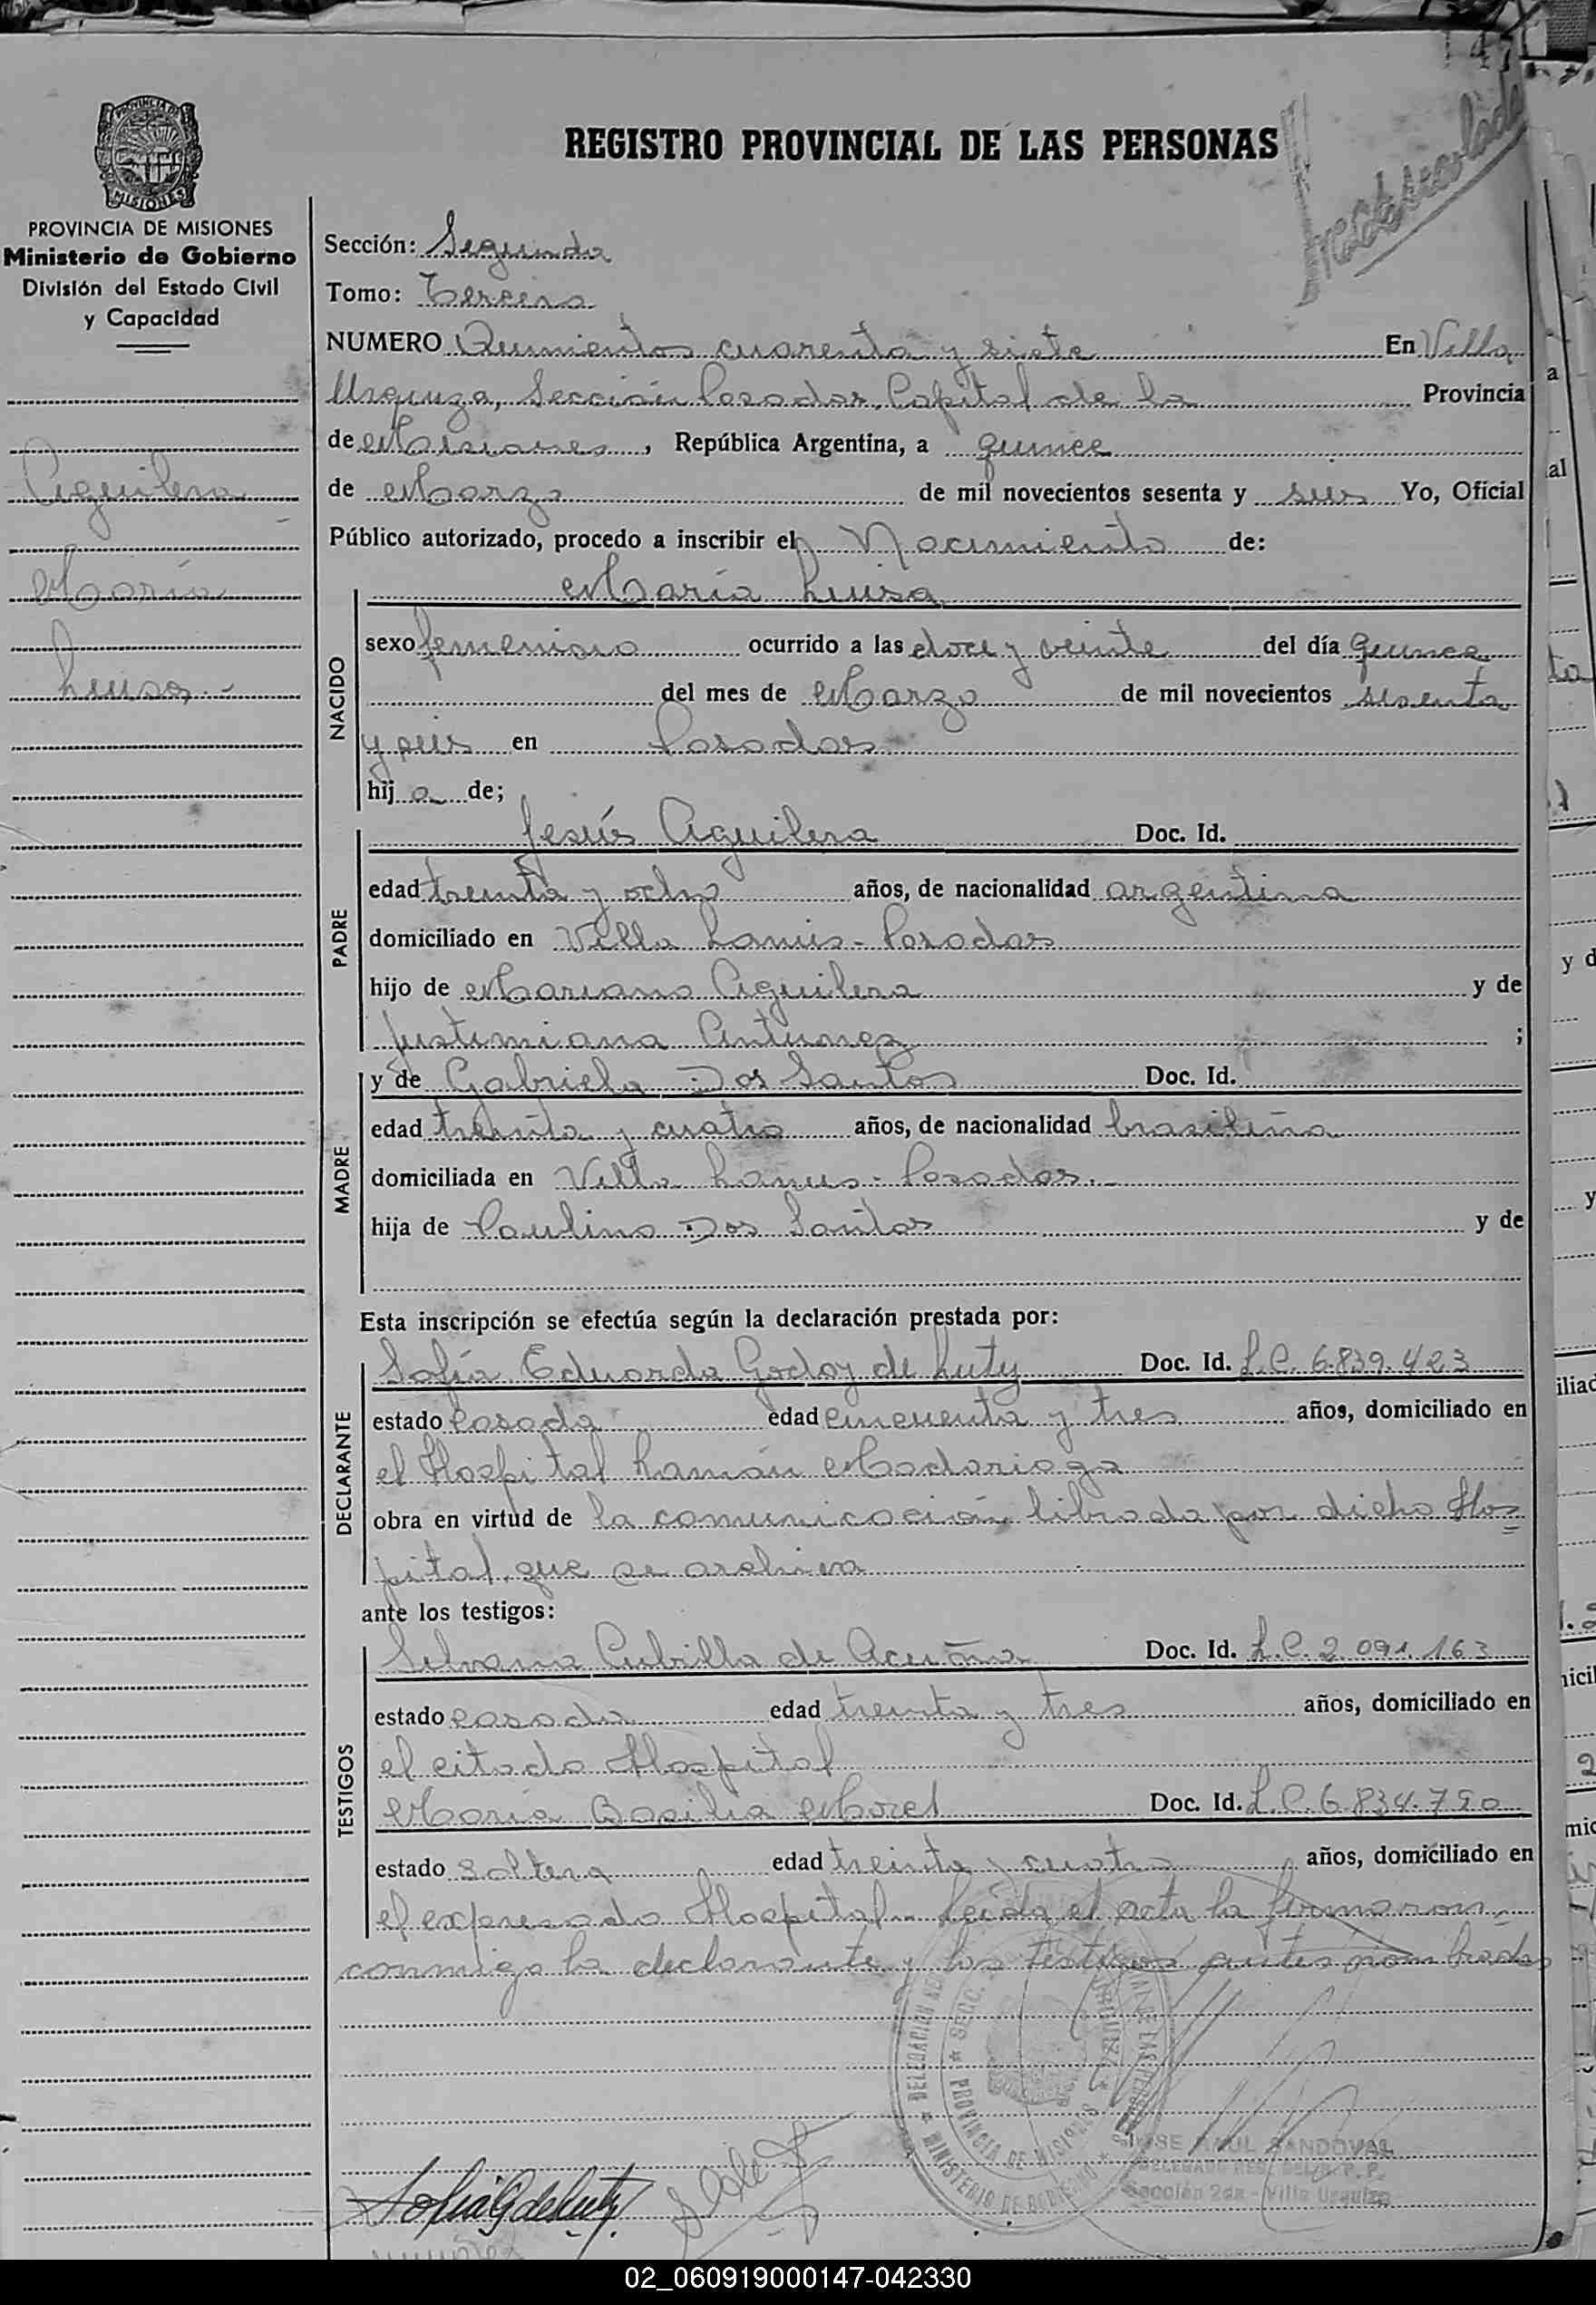 147
Matriculada
PROVINCIA DE
MISIONES
REGISTRO PROVINCIAL DE LAS PERSONAS
PROVINCIA DE MISIONES
Ministerio de Gobierno
División del Estado Civil
y Capacidad
Aguilera
María
Luisa.-
Sección: Segunda
Tomo: Tercero
NUMERO Quinientos cuarenta y siete En Villa
Urquiza, Sección Posadas, Capital de la Provincia
de Misiones, República Argentina, a quince
de Marzo de mil novecientos sesenta y seis Yo, Oficial
Público autorizado, procedo a inscribir el Nacimiento de:
NACIDO
María Luisa
sexo femenino ocurrido a las doce y veinte del día quince
del mes de Marzo de mil novecientos sesenta
y seis en Posadas
hija de;
PADRE
Jesús Aguilera Doc. Id.
edad treinta y ocho años, de nacionalidad argentina
domiciliado en Villa Lanús - Posadas
hijo de Mariano Aguilera y de
Justiniana Antunez ;
MADRE
y de Gabriela Dos Santos Doc. Id.
edad treinta y cuatro años, de nacionalidad brasileña
domiciliada en Villa Lanus - Posadas.-
hija de Paulino Dos Santos y de
Esta inscripción se efectúa según la declaración prestada por:
DECLARANTE
Sofía Eduarda Godoy de Luty Doc. Id. L.C. 6.839.423
estado casada edad cincuenta y tres años, domiciliado en
el Hospital Ramón Madariaga
obra en virtud de la comunicación librada por dicho Hos=
pital, que se archiva
ante los testigos:
TESTIGOS
Silvana Cubilla de Acuña Doc. Id. L.C. 2.091.163
estado casada edad treinta y tres años, domiciliado en
el citado Hospital
María Basilia Morel Doc. Id. L.C. 6.834.790
estado soltera edad treinta y cuatro años, domiciliado en
el expresado Hospital.- Leida el acta la firmaron
conmigo la declarante y los testigos antes nombrados
MINISTERIO DE GOBIERNO
PROVINCIA DE MISIONES
JOSE RAUL SANDOVAL
Sección 2da - Villa Urquiza
Sofia G de Luty
02_060919000147-042330